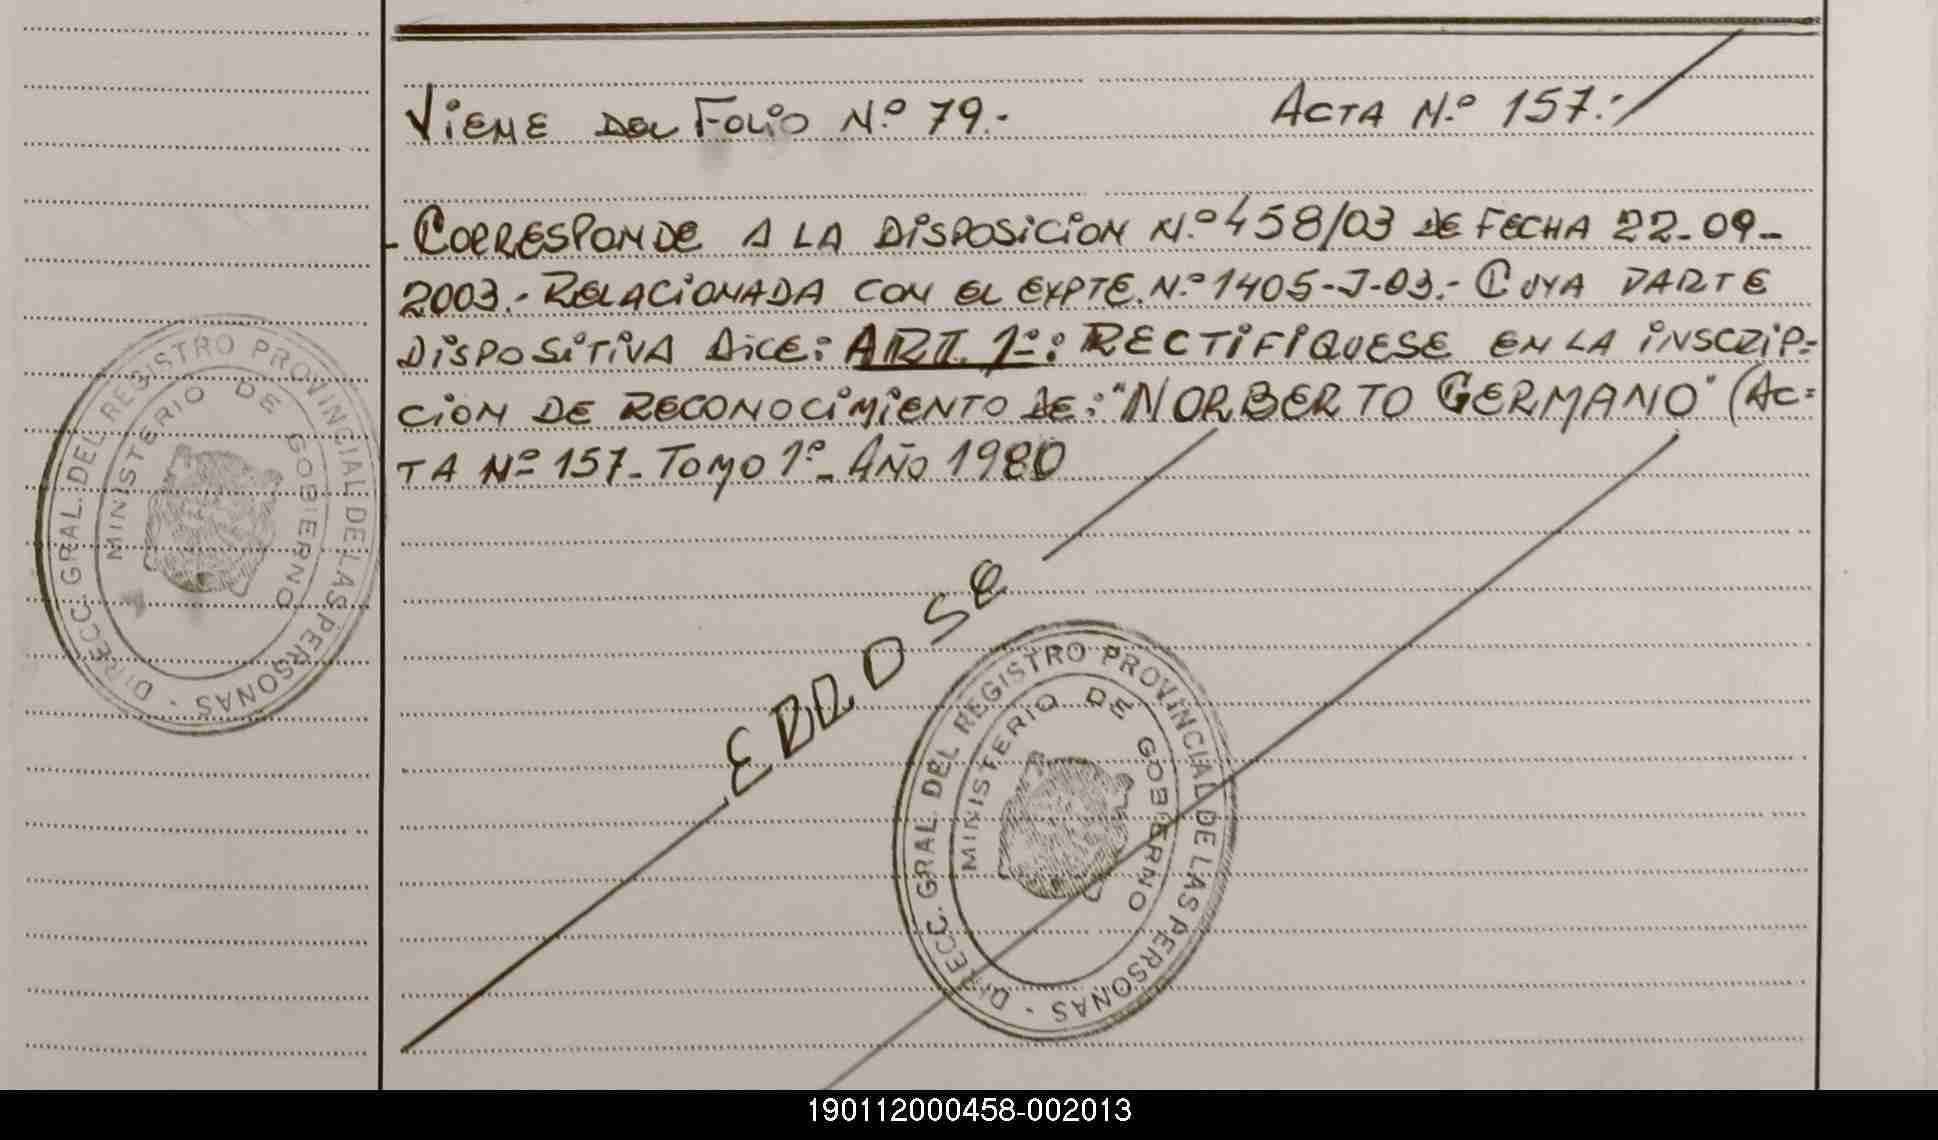 Viene del Folio N.º 79.-
Acta N.º 157.-
- Corresponde a la Disposicion N.º 458/03 de fecha 22-09-
2003.- Relacionada con el expte. N.º 1405-J-03.- Cuya parte
dispositiva dice: ART. 1º: Rectifiquese en la inscrip=
cion de reconocimiento de: "NORBERTO GERMANO" (Ac=
ta Nº 157- Tomo 1º- Año 1980
ERROSE
DIRECC. GRAL. DEL REGISTRO PROVINCIAL DE LAS PERSONAS -
MINISTERIO DE GOBIERNO
DIRECC. GRAL. DEL REGISTRO PROVINCIAL DE LAS PERSONAS -
MINISTERIO DE GOBIERNO
190112000458-002013